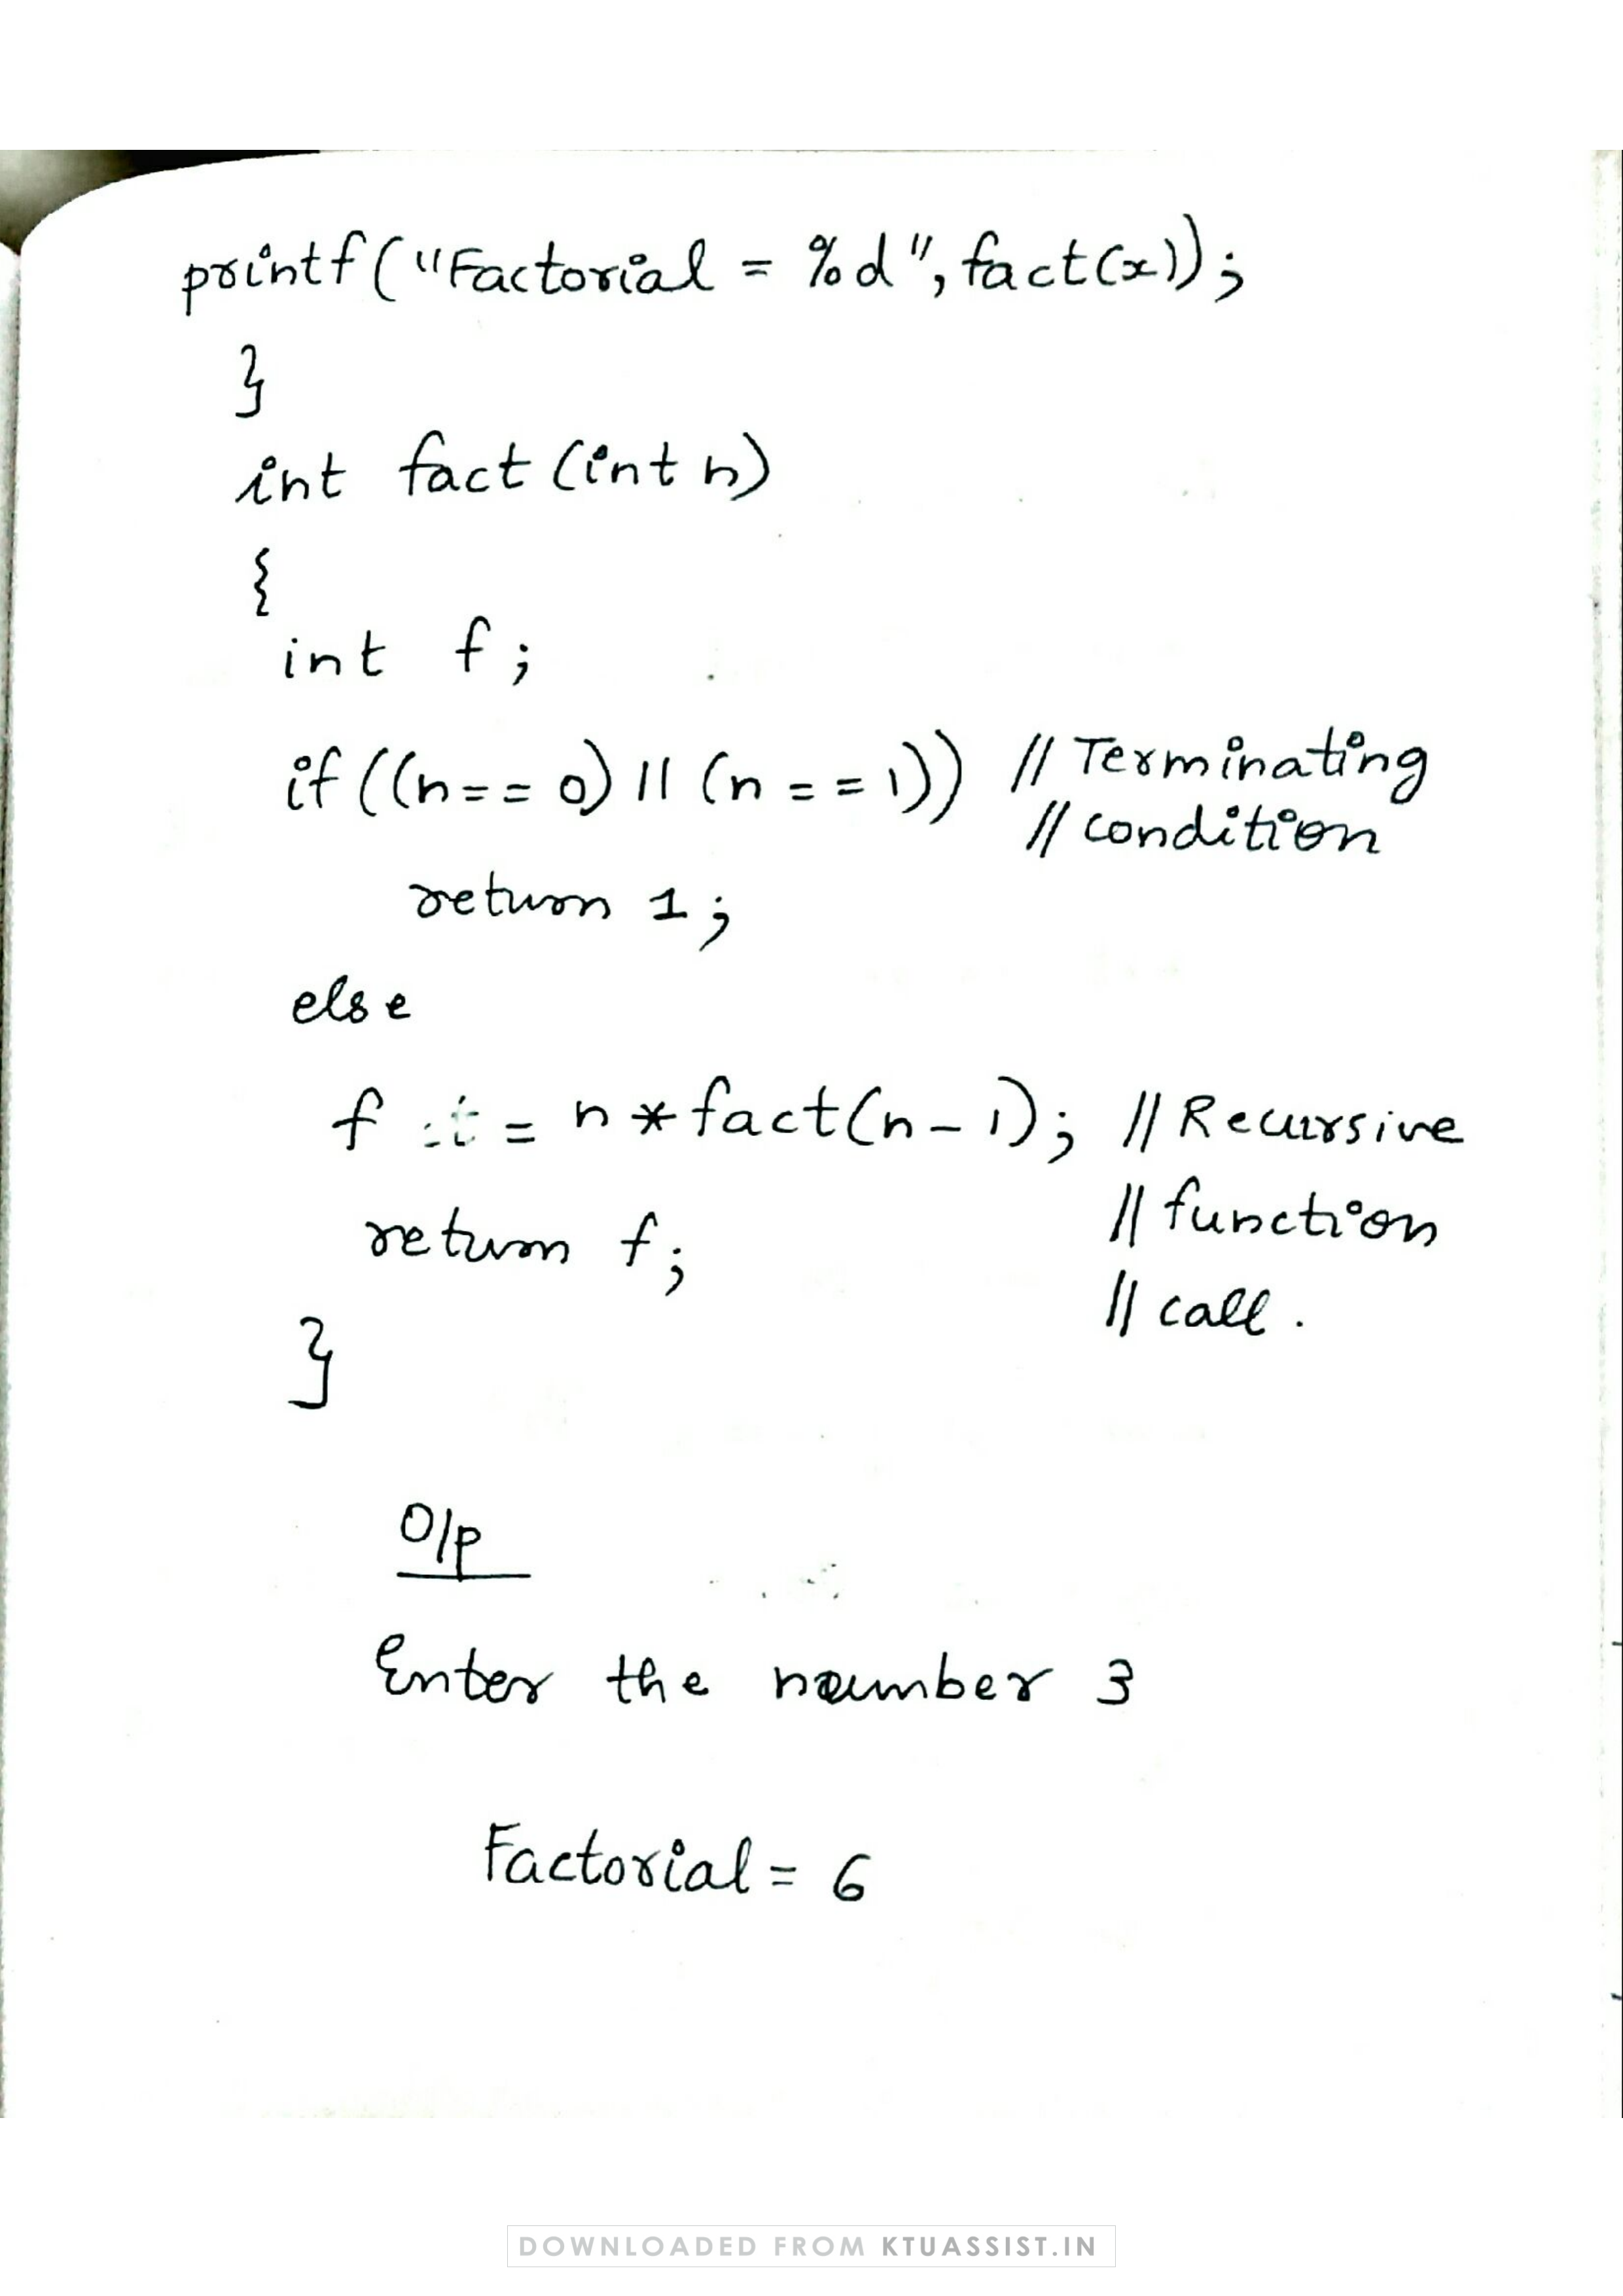 printf("Factorial = %d", fact(x));
}
int fact (int n)
{
int f;
if ((n== 0) || (n == 1)) // Terminating
// condition
return 1;
else
f = n * fact(n-1); // Recursive
// function
return f;
// call.
}
O/p
Enter the number 3
Factorial = 6
DOWNLOADED FROM KTUASSIST.IN